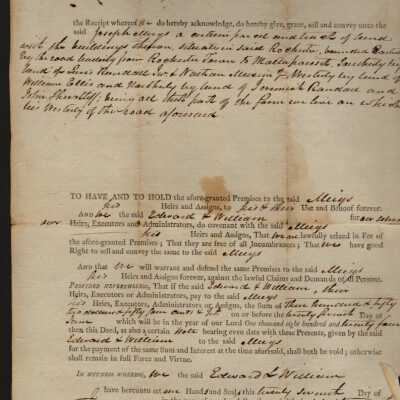 the Receipt whereof we do hereby acknowledge, do hereby give, grant, sell and convey unto the
said Joseph Meigs a certain parcel and tract of land
with the buildings thereon, situate in said Rochester, bounded Easterly
by the road leading from Rochester Town to Mattapoisett, Southerly by
land of & Nathan Westerly by land of
William Ellis and Northerly by land of Jeremiah Randall and
John being all that part of the farm we live on which
lies Westerly of the road aforesaid
TO HAVE AND TO HOLD the afore-granted Premises to the said Meigs
his Heirs and Assigns, to his & their Use and Behoof forever.
AND we the said Edward & William for our selves
our Heirs, Executors and Administrators, do covenant with the said Meigs
his Heirs and Assigns, That we are lawfully seized in Fee of
the afore-granted Premises; That they are free of all Incumbrances; That we have good
Right to sell and convey the same to the said Meigs
AND that we will warrant and defend the same Premises to the said Meigs
his Heirs and Assigns forever, against the lawful Claims and Demands of all Persons.
PROVIDED NEVERTHELESS, That if the said Edward & William, their
Heirs, Executors or Administrators, pay to the said Meigs
his Heirs, Executors, Administrators, or Assigns, the Sum of Three hundred & fifty
two dollars & fifty four cents & Int on or before the twenty seventh Day of
June which will be in the year of our Lord One thousand eight hundred and twenty four
then this Deed, as also a certain Note bearing even date with these Presents, given by the said
Edward & William to the said Meigs
for the payment of the same Sum and Interest at the time aforesaid, shall both be void; otherwise
shall remain in full Force and Virtue.
IN WITNESS WHEREOF, We the said Edward & William
have hereunto set our Hands and Seals this twenty seventh Day of